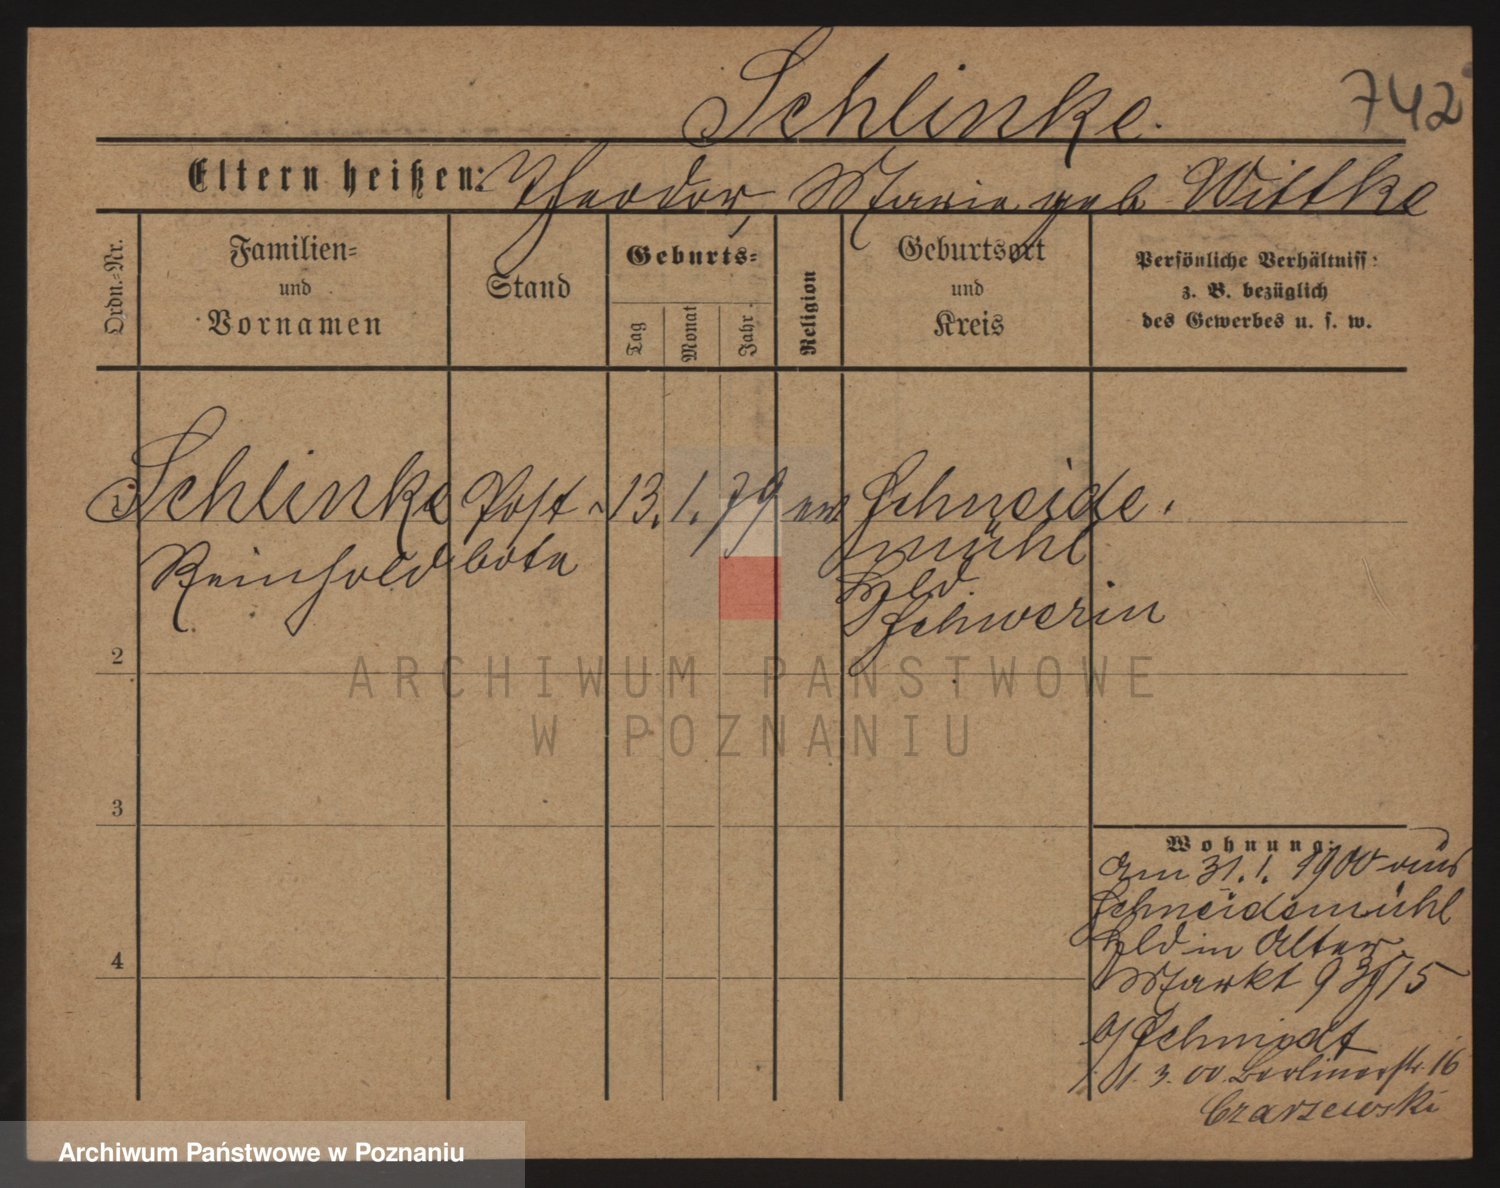 742
Schlinke.
Eltern heißen: Theodor, Marie geb Wittke
Ordn.-Nr.
Familien-
und
Vornamen
Stand
Geburts-
Tag
Monat
Jahr.
Religion
Geburtsort
und
Kreis
Persönliche Verhältniss:
z. B. bezüglich
des Gewerbes u. s. w.
Schlinke Post- 13. 1. 79 ev Schneide-
mühl
Reinhold bote
Schwerin
2
3
4
Wohnung:
Am 31. 1. 1900 aus
Schneidemühl
in Alter
Markt
b/ Schmidt
1. 3. 00 Berlinerstr. 16
Czarzewski
ARCHIWUM PAŃSTWOWE
W POZNANIU
Archiwum Państwowe w Poznaniu